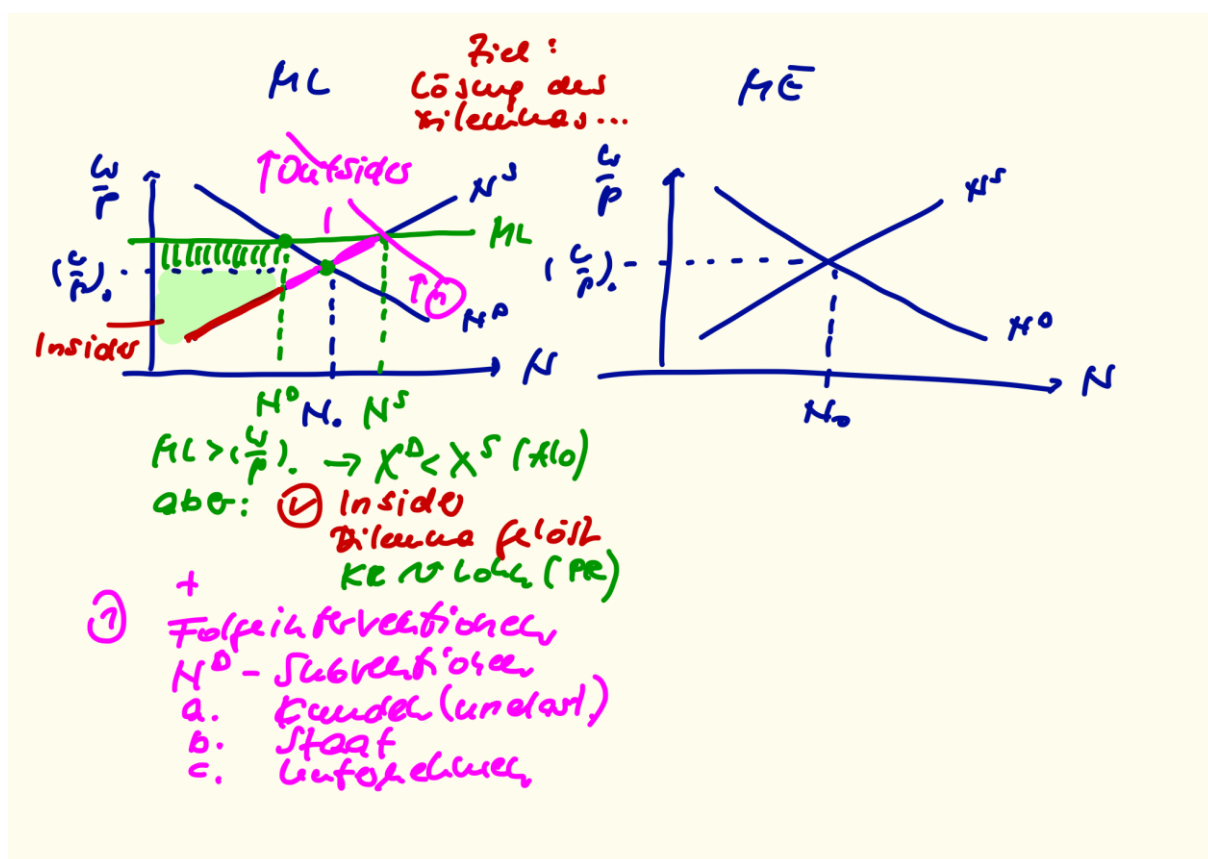 Ziel:
ML
Lösung des
Dilemmas...
MĒ
↑Outsider
W/P
N^S
ML
(W/P)₀
↑①
N^D
Insider
N
N^D N₀ N^S
W/P
N^S
(W/P)₀
N^D
N
N₀
ML > (W/P)₀ → X^D < X^S (Alo)
aber: ✓ Insider
Dilemma gelöst
KR ~ Lohn (PR)
+
① Folgeinterventionen
N^D - Subventionen
a. Kunden (unelast.)
b. Staat
c. Unternehmen